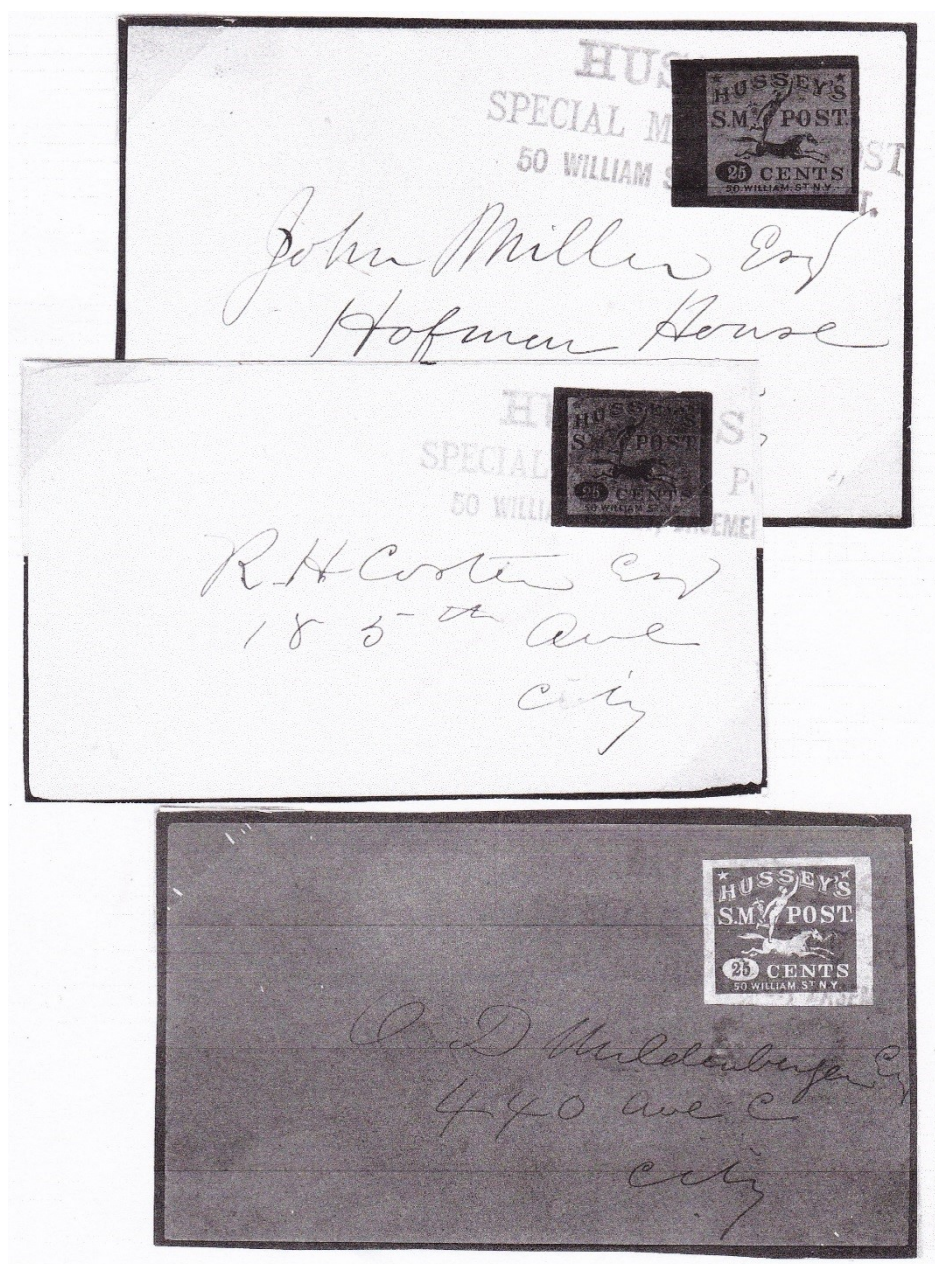 HUS
SPECIAL M ST
50 WILLIAM S
HUSSEY'S
S.M. POST.
25 CENTS
50 WILLIAM. ST N.Y
John Miller Esq
Hofman House
H S
SPECIAL P
50 WILLIA BASEMEN
HUSSEY'S
S.M. POST.
25 CENTS
50 WILLIAM ST N.Y
R. H. Coster Esq
18 5th Ave
City
HUSSEY'S
S.M. POST.
25 CENTS
50 WILLIAM ST N.Y
O D Muldenberger Esq
440 Ave C
City